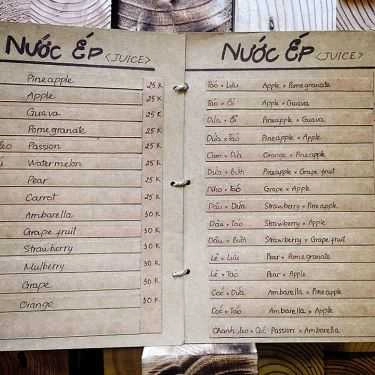 NƯỚC ÉP <JUICE>
Pineapple 25 K
Apple 25 K
Guava 25 K
Pomegranate 25 K
Passion 25 K
Watermelon 25 K
Pear 25 K
Carrot 25 K
Ambarella 30 K
Grape fruit 30 K
Strawberry 30 K
Mulberry 30 K
Grape 30 K
Orange 30 K
NƯỚC ÉP <JUICE>
Táo + Lựu Apple + Pomegranate
Táo + Ổi Apple + Guava
Dứa + Ổi Pineapple + Guava
Dứa + Táo Pineapple + Apple
Cam + Dứa Orange + Pineapple
Dứa + Bưởi Pineapple + Grape fruit
Nho + Táo Grape + Apple
Dâu + Dứa Strawberry + Pineapple
Dâu + Táo Strawberry + Apple
Dâu + Bưởi Strawberry + Grape fruit
Lê + Lựu Pear + Pomegranate
Lê + Táo Pear + Apple
Cóc + Dứa Ambarella + Pineapple
Cóc + Táo Ambarella + Apple
Chanh leo + Cóc Passion + Ambarella